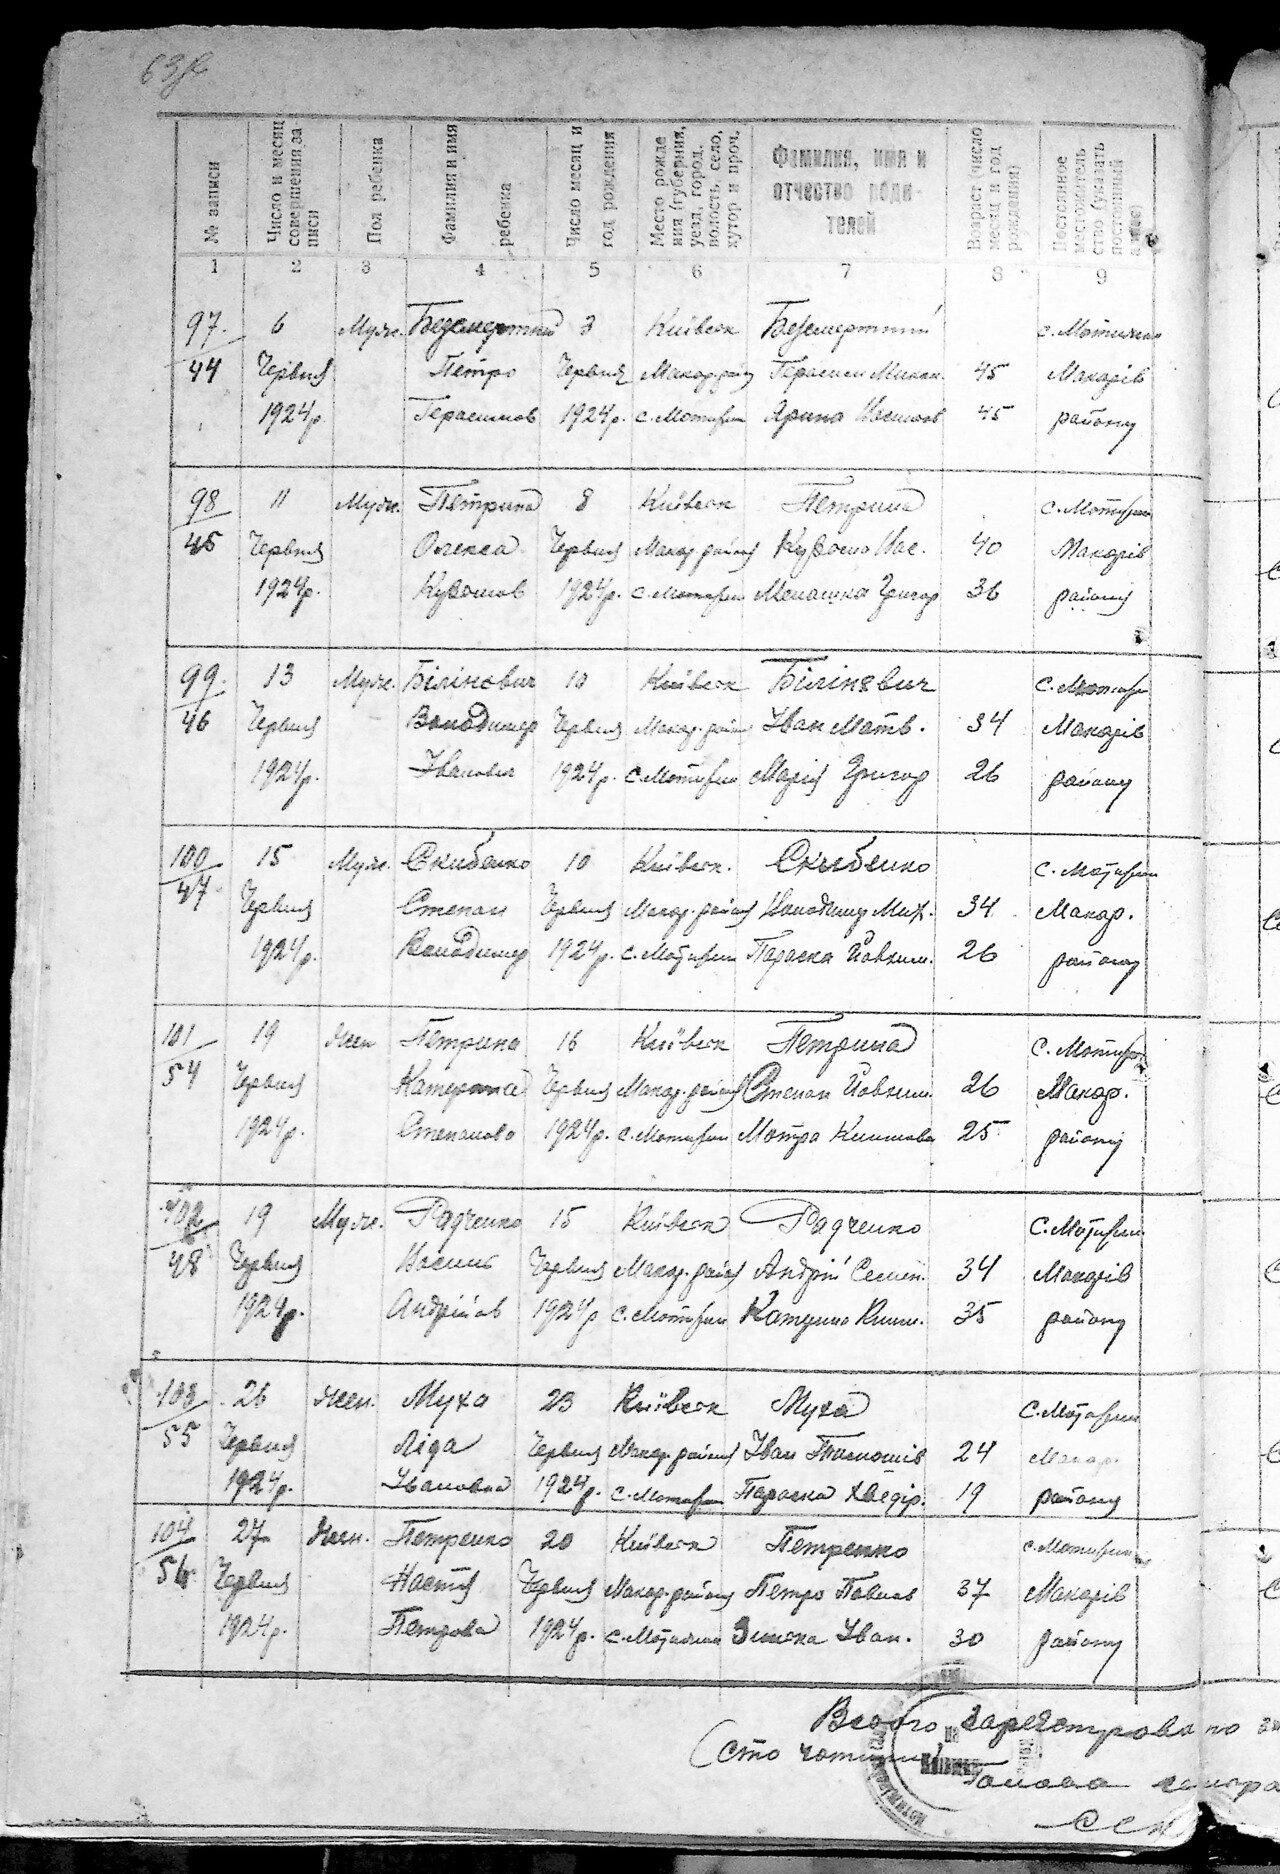 63
№ записи
Число и месяц совершения записи
Пол ребенка
Фамилия и имя ребенка
Число месяц и год рождения
Место рождения (губерния, уезд, город, волость, село, хутор и проч.
Фамилия, имя и отчество родителей
Возраст (число месяц и год рождения)
Постоянное местожительство (указать постоянный адрес)
1 2 3 4 5 6 7 8 9
97. 6 Муж. Безсмертний 3 Київськ Безсмертний с. Мотижин
44 Червня Петро Червня Макар. району Герасим Микол. 45 Макарів
1924р. Герасимов 1924р. с. Мотижин Ярина 45 району
98 11 Муж. Петрина 8 Київськ Петрина с. Мотижин
45 Червня Олекса Червня Макар. району Вас. 40 Макарів
1924р. 1924р. с. Мотижин Мелашка Григор 36 району
99. 13 Муж. Білінович 10 Київськ Білінович с. Мотижин
46 Червня Володимер Червня Макар. район Іван Матв. 34 Макарів
1924р. Іванович 1924р. с. Мотижин Марія Григор 26 району
100 15 Муж. Скибенко 10 Київськ. Скибенко с. Мотижин
47 Червня Степан Червня Макар. району Володимир Мих. 34 Макар.
1924р. Володимер 1924р. с. Мотижин Параска Йовхим. 26 району
101 19 Жен Петрина 16 Київськ Петрина с. Мотиж
54 Червня Катерина Червня Макар. району Степан Йовхим. 26 Макар.
1924р. Степанова 1924р. с. Мотижин Мотря 25 району
102 19 Муж. Радченко 15 Київськ Радченко с. Мотижин
48 Червня Василь Червня Макар. району Андрій Семен. 34 Макарів
1924р. Андрійов 1924р с. Мотижин Катерина 35 району
103 26 Жен. Муха 23 Київськ Муха с. Мотижин
55 Червня Ліда Червня Макар. району Іван 24 Макар.
1924р. Івановна 1924р. с. Мотижин Параска Хведір. 19 району
104 27 Жен. Петренко 20 Київськ Петренко с. Мотижин
56 Червня Настя Червня Макар. району Петро Павлов 37 Макарів
1924р. Петрова 1924р. с. Мотижин Іван. 30 району
Всього зареєстровано
(сто чотири)
Голова